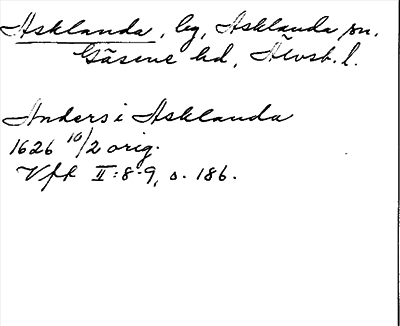 Asklanda, by, Asklanda sn.
Gäsene hd, Älvsb. l.
Anders i Asklanda
1626 10/2 orig.
Vfk II:8-9, s. 186.